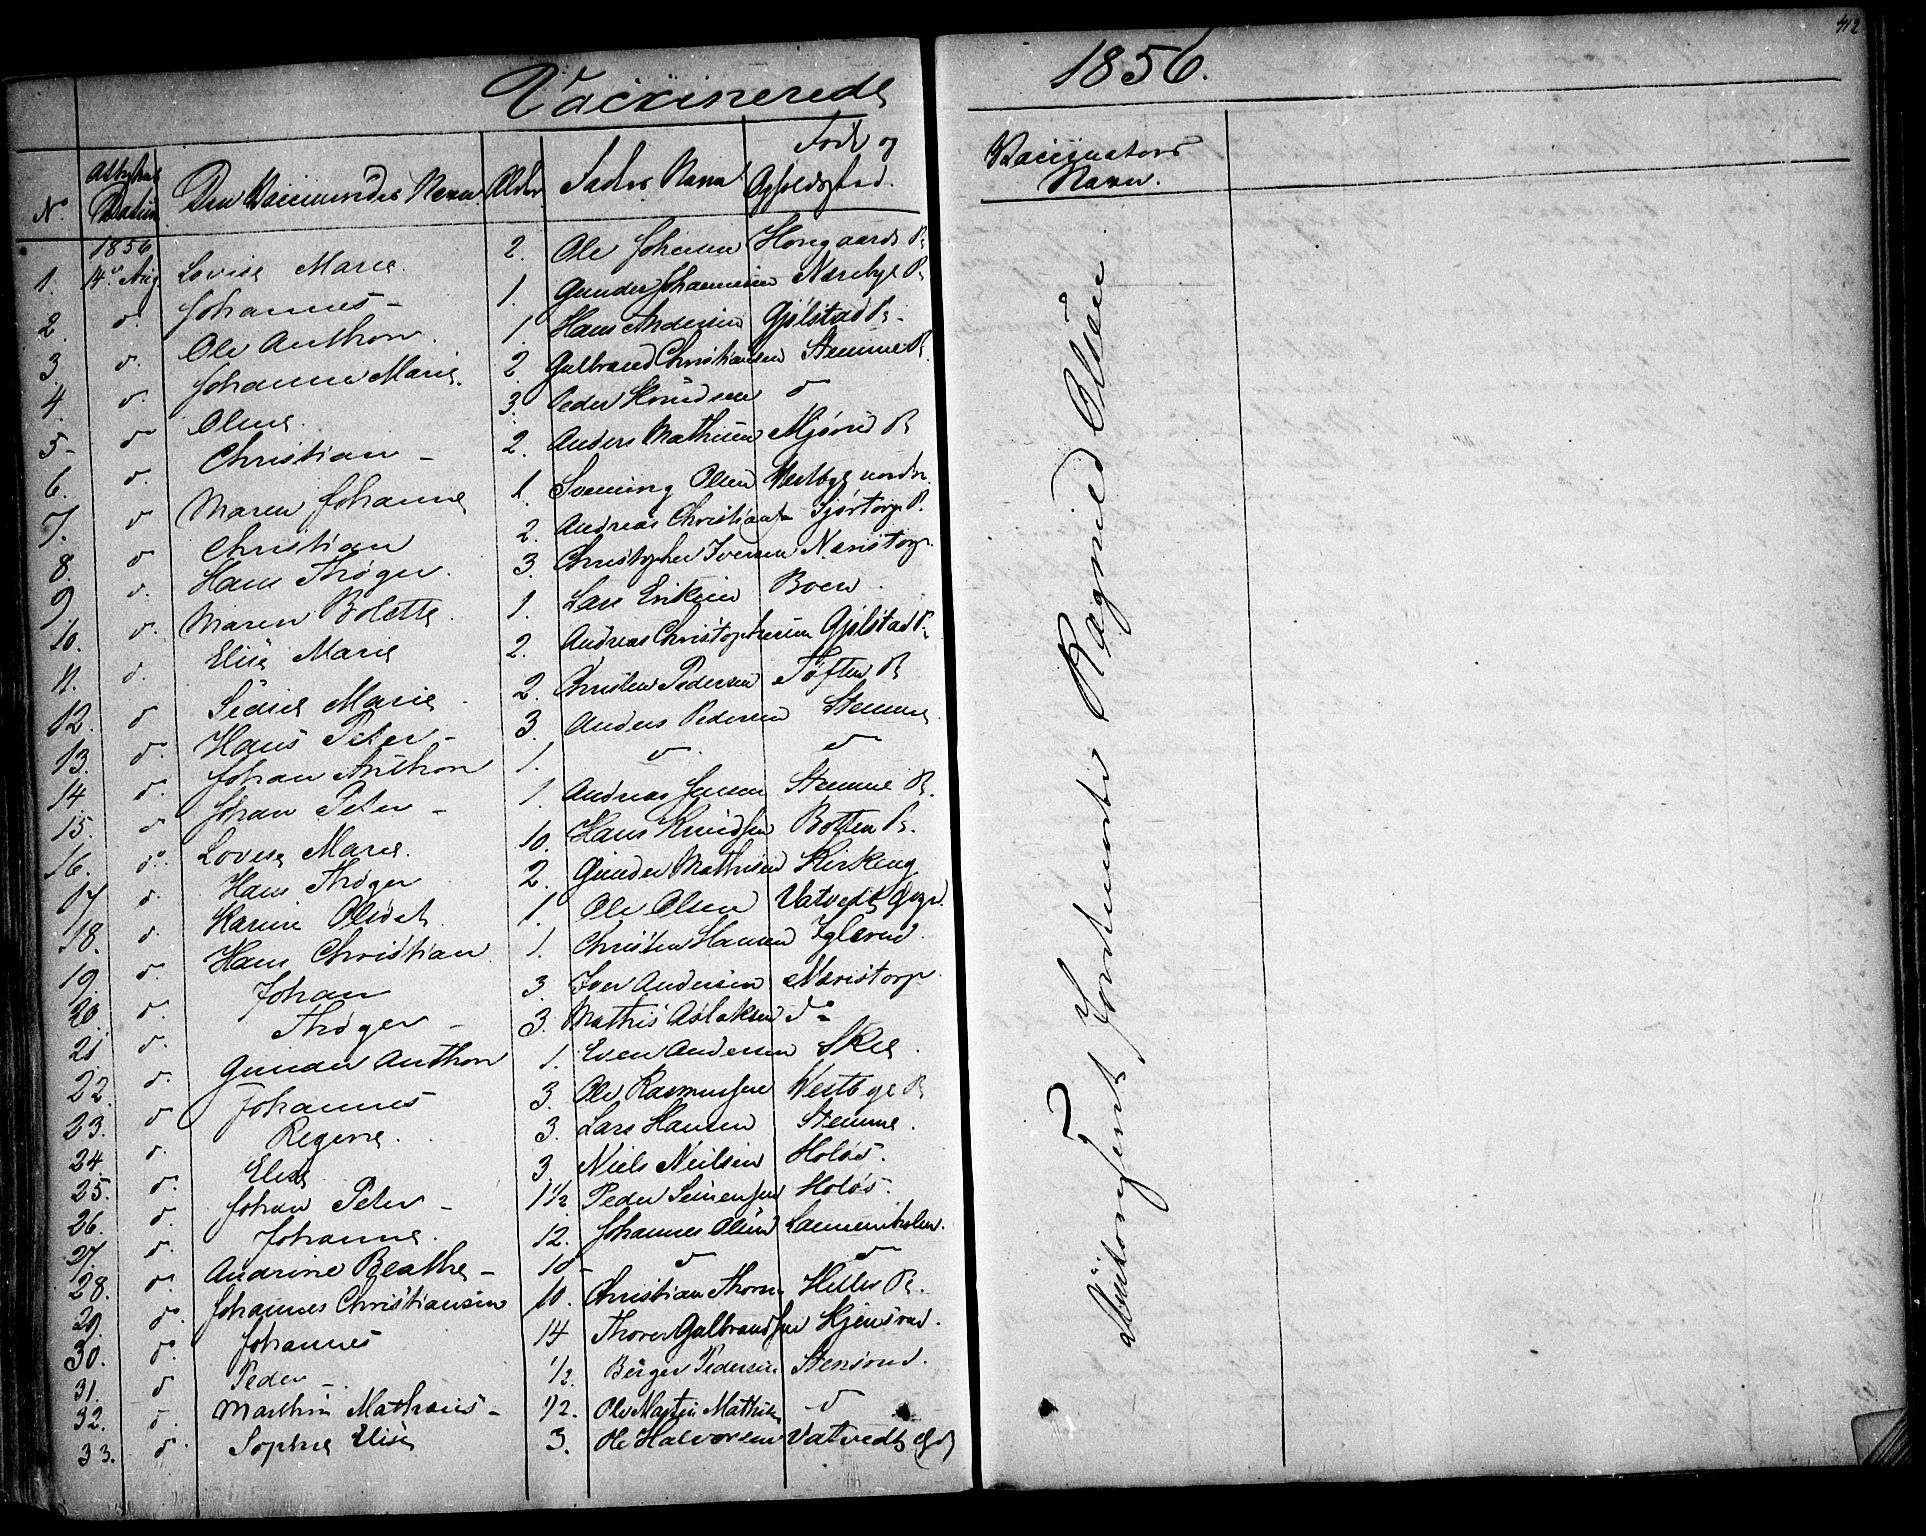 412
Vaccinerede
1856.
No
Datum
Den Vaccineredes Navn
Alder
Faders Navn
Føde og Opholdssted.
Vaccinateurs Navn.
1856
1. 14de Aug Lovise Marie. 2. Ole Johansen Horgaards
2. d. Johannes - 1. Gunder Johannesen Narebye
3. d. Ole Anthon. 1. Hans Andersen Gjølstad
4. d. Johanne Marie. 2. Gulbrand Christiansen Stemme
5. d Oline. 3. Peder Knudsen d
6. d. Christian - 2. Anders Mathisen Mjørud
7. d Maren Johanne 1. Svening Olsen Vestbye nordre
8. d Christian 2. Andreas Christians
9. d. Hans Thøger. 3. Christopher Iversen Naristorp.
10. d. Maren Bolette. 1. Lars Eriksen Boen.
11. d. Elise Marie 2. Andreas Christophersen Gjølstad
12. d Marie 2. Christen Pedersen Toften
13. d. Hans Peter - 3. Anders Pedersen Stemme
14. d. Johan Anthon 1. d. d
15. d Johan Peter - 1. Andreas Jensen Stemme
16. do. Lovise Marie. 10. Hans Knudsen Botten
17. d. Hans Thøger 2. Gunder Mathisen Kirkeng
18. d. Karine 1. Ole Olsen Vatvedt
19. d. Hans Christian 1. Christen Hansen Iglerud.
20. d. Johan 3. Iver Andersen Naristorp.
21. d. Thøger - 3. Mathis Aslaksen do
22. d. Gunder Anthon 1. Even Andersen Skie.
23. d Johannes 3. Ole Rasmussen Vestbye
24. d. Regine. 3. Lars Hansen Stemme.
25. d. Elise 3. Niels Neilsen Holøs.
26. d. Johan Peter - 1 1/2 Peder Holøs.
27. d. Johanne. 12. Johannes Olsen
28. d. Andrine Beathe - 10 - d d
29. d. Johannes Christiansen 10. Christian Thorsen Heller
30. d. Johannes 14 Thorer Gulbrandsen
31. d Peder - 1/2. Børger Pedersen
32. d. Marthin Mathæus - 1/2. Ole Martin d
33. d. Sophie Elise 3. Ole Halvorsen Vatvedt
Ragnild Olsen